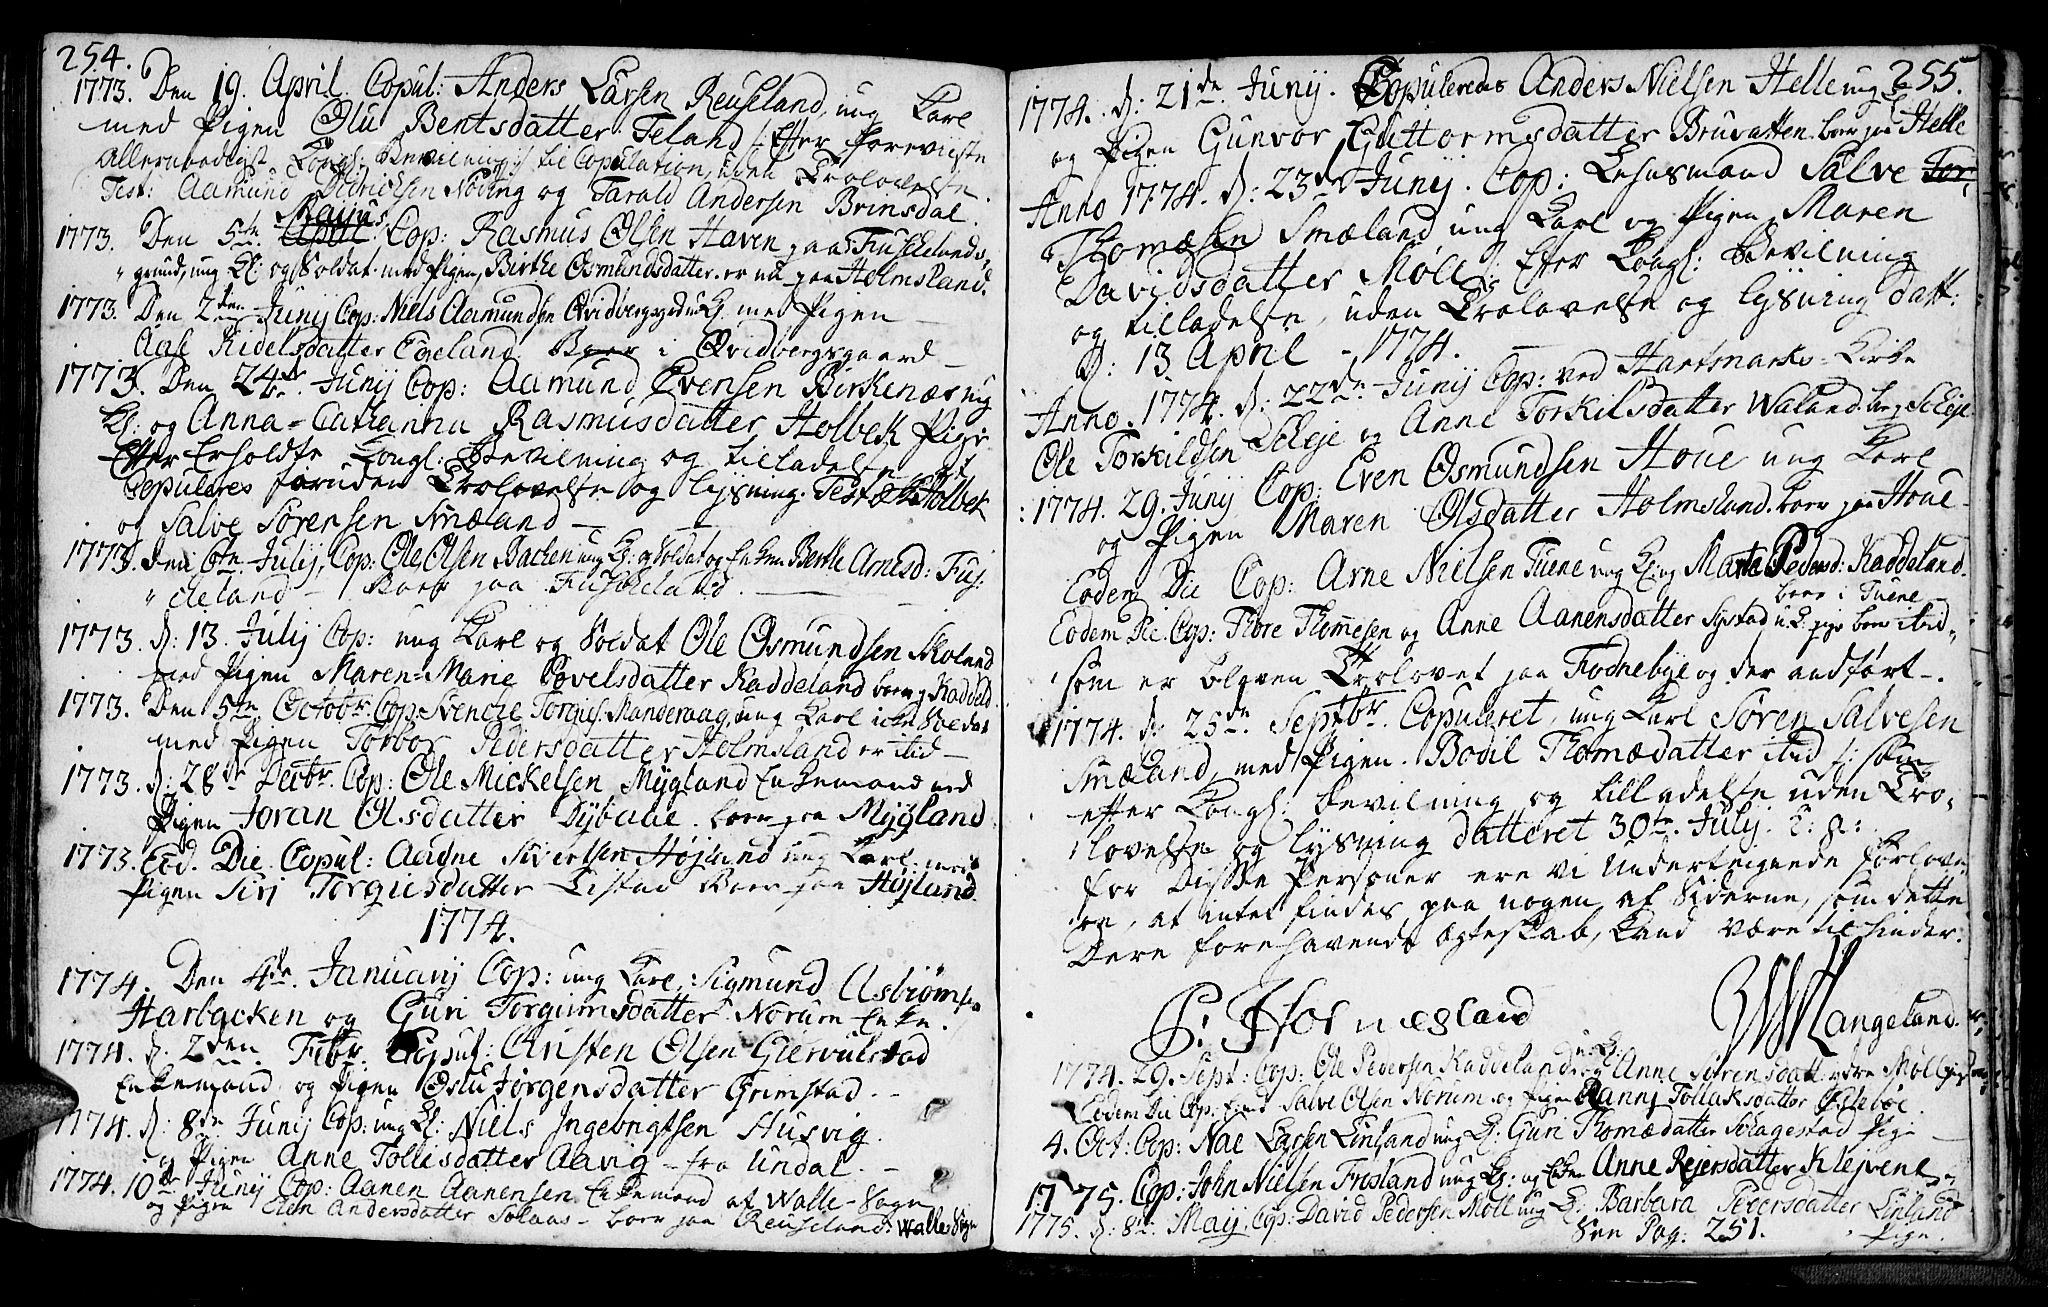 254.
1773. Den 19. April. Copul: Anders Larsen Reuseland, ung Karl
med Pigen Olu Bentsdatter Teland /: Efter foreviiste
allernaadigst Kongl: Bevilning :/ til Copulation, uden Trolovelse
Test: Aamund Didrichsen Nöding og Tarald Andersen Brinsdal.
Majus
1773. Den 5te April Cop: Rasmus Olsen Haven paa Fuskelands
grund, ung K: og Soldat med Pigen Birthe Osmundsdatter er nu paa Holmsland.
1773. Den 2den Junij Cop: Niels Aamundsen Qvidbergsgrd u: K. med Pigen
Aase Kidelsdatter Egeland. Boer i Qvidbergsgaard
1773. Den 24de Junij Cop: Aamund Evensen Birkenæs ung
K: og Anna-Cathrina Rasmusdatter Holbek Pige
Efter Erholdte Kongl: Bevilning og tilladelse at
Copuleres foruden Trolovelse og lysning. Test: Holbek
og Salve Sörensen Smæland
1773. Den 6te Julij, Cop: Ole Olsen Backen ung K: og Soldat og Enken Berthe Arnesd: Fus,
keland - Boer paa Fuskeland.
1773. d: 13. Julij Cop: ung Karl og Soldat Ole Osmundsen Skoland
med Pigen Maren-Marie Povelsdatter Kaddeland boer p. Kaddeld.
1773. Den 5te Octobr. Cop. Svencke Torgus: Manderaag, ung Karl icke Soldat
med Pigen Torbor Pedersdatter Holmsland er ibid
1773. d: 28de Decbr. Cop: Ole Mickelsen Mygland Enkemand med
Pigen Joran Olsdatter Dybaae. boer paa Mygland
1773. Eod. Die. Copul: Aadne Sivertsen Højland ung Karl. med
Pigen Siri Torgiesdatter Eistad Boer paa Højland.
1774.
1774. Den 4de Januarij Cop: ung Karl, Sigmund Asbiörnsen
Harbacken og Guri Torgiimsdatter Norum Enke.
1774. d. 2den Febr. Copul: Christen Olsen Giervulstad
Enkemand og Pigen Oslu Jörgensdatter Grimstad.
1774. d: 8de Junij Cop: ung K: Niels Ingebrigtsen Husvig
og Pigen Anne Tollesdatter Aavig - fra Undal.
1774. 10de Junij Cop: Aanen Aanensen Enkemand af Walle-Sogn
og Pigen Elen Andersdatter Solaas - boer paa Reuseland: Walle Sogn
255.
1774. d: 21de Junij. Copuleredes Anders Nielsen Helle ung K.
og Pigen Gunvor Guttormsdatter Bruvatten. boer paa Helle
Anno 1774. d: 23de Junij. Cop: Lehnsmand Salve Tor,
Thomæsen Smæland ung Karl og Pigen Maren
Davidsdatter Möll /: Efter Kongl: Bevilning
og tilladelse, uden Trolovelse og lysning datt:
D: 13 April - 1774.
Anno. 1774. d. 22de Junij Cop: ved Hartmarks-Kirke
Ole Torkildsen Sleje og Anne Torkilsdatter Waland. boer p. Sleje.
1774. 29. Junij Cop: Even Osmundsen Houe ung Karl
og Pigen Maren Olsdatter Holmsland boer paa Houe
Eodem Die Cop: Arne Nielsen Tuene ung K: og Marte Pedersd: Kaddeland.
boer i Tuene
Eodem Die. Cop: Thore Thommesen og Anne Aanensdatter Systad u. K. pige boer ibid,
som er bleven Trolovet paa Fodnebye og der andfört.
1774. d: 25de Septbr. Copuleret, ung Karl Sören Salvesen
Smæland, med Pigen Bodil Thomædatter ibid /: som
efter Kongl: bevilning og tilladelse uden Tro,
lovelse og lysning datteret 30te Julij.
for Disse Personer ere vi Underteignede forlove,
re, at intet findes paa nogen af Siderne, som dette
Dere forehavende Ægteskab, Kand være til hinder.
P: Hornesland
Langeland.
1774. 29. Sept: Cop: Ole Pedersen Kaddeland u: K: og Anne Sörensdatt. ydre Möll
Eodem Die Cop: Salve Olsen Norum og Pigen Ranni Tollaksdatter Östeböe.
4. Oct: Cop: Nae Larsen Linland ung K: Guri Thomædatter Sÿragestad Pige
1775. Cop: John Nielsen Frisland ung K: og Enke Anne Rejersdatter Klejvene,
1775. d: 8de Maij Cop: David Pedersen Möll ung K. Barbara Pedersdatter Linland
Pige.
See Pag: 251.